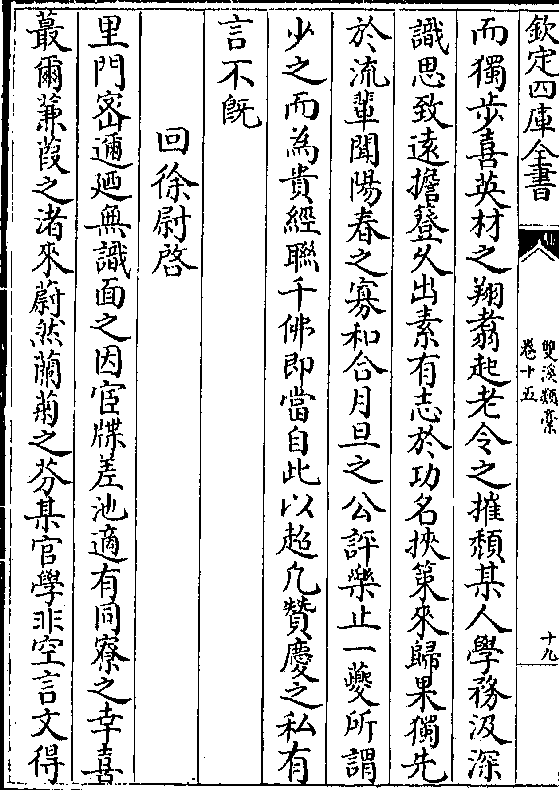 欽定四庫全書
雙溪類稾
卷十五
十九
而獨步喜英材之翔翥起老令之摧頽某人學務汲深
識思致遠擔簦久出素有志於功名挾策來歸果獨先
於流輩聞陽春之寡和合月旦之公評樂止一夔所謂
少之而為貴經聯千佛即當自此以超凡贊慶之私有
言不既
回徐尉啓
里門密邇廼無識面之因宦牒差池適有同寮之幸喜
蕞爾蒹葭之渚來蔚然蘭菊之芬某官學非空言文得